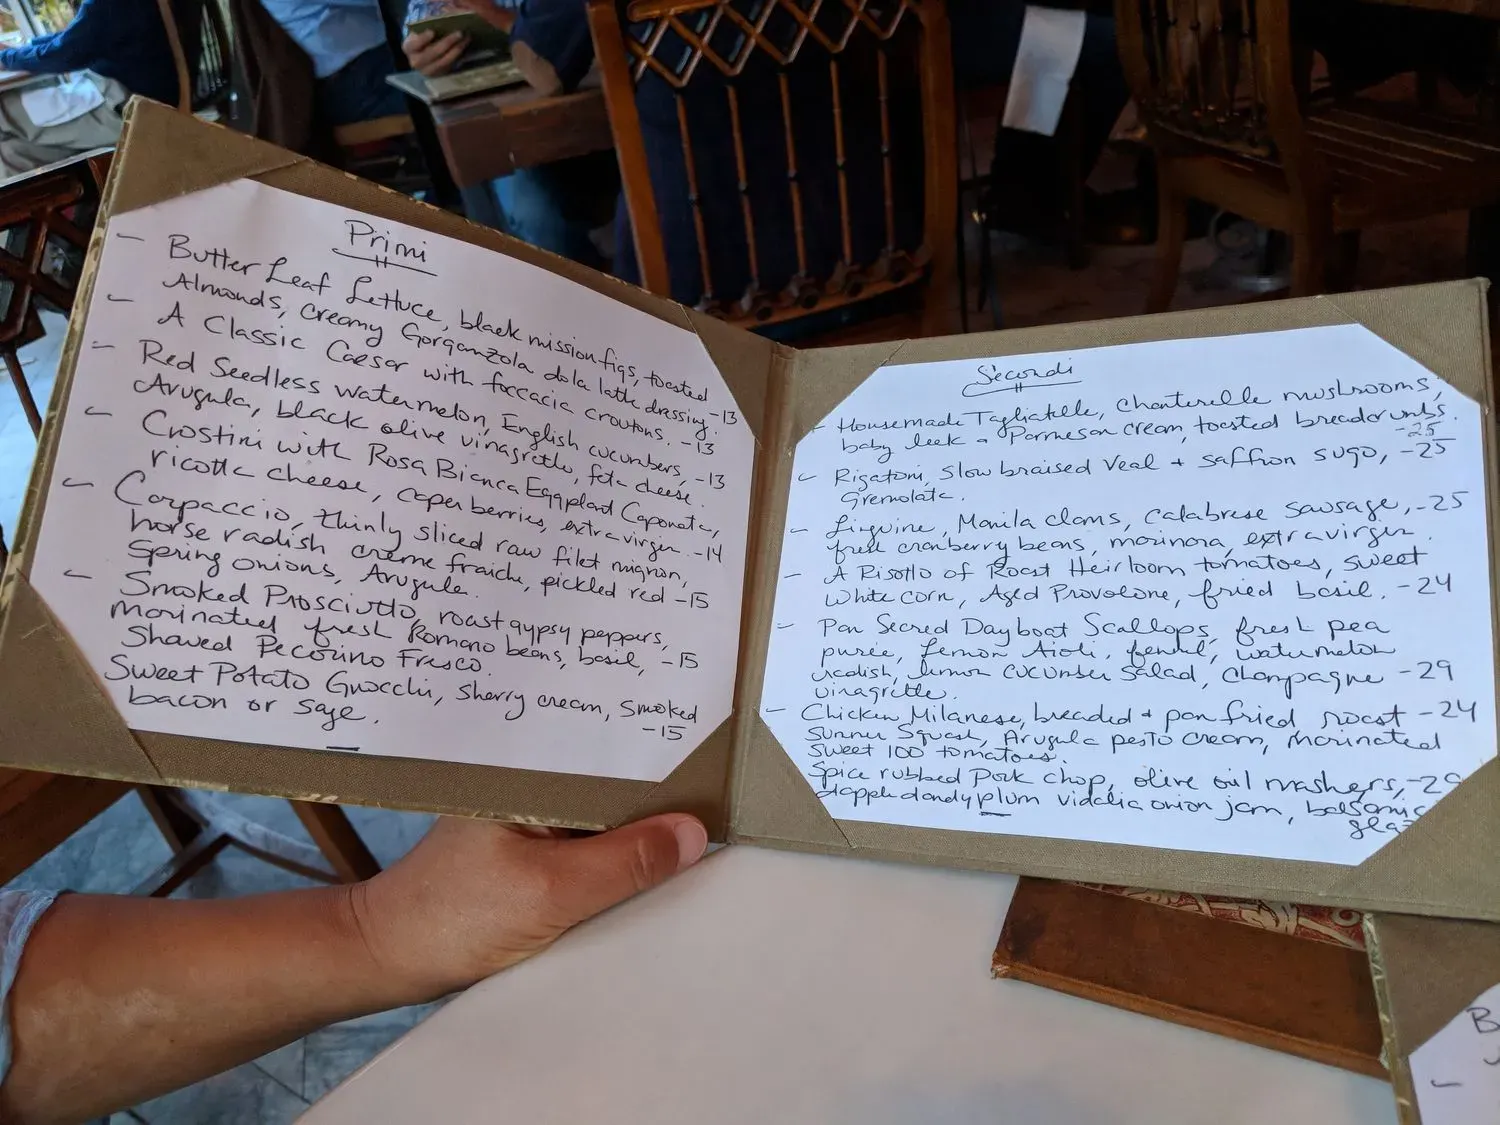 Primi
- Butter Leaf Lettuce, black mission figs, toasted
Almonds, creamy Gorganzola dola latte dressing. -13
- A Classic Caesar with foccacia croutons. -13
- Red Seedless Watermelon, English cucumbers, -13
Arugula, black olive vinagrette, feta cheese.
- Crostini with Rosa Bianca Eggplant Caponata,
ricotta cheese, caper berries, extra virgin. -14
- Carpaccio, thinly sliced raw filet mignon,
horse radish creme fraiche, pickled red -15
Spring onions, Arugula.
- Smoked Prosciutto, roast gypsy peppers,
Marinated fresh Romano beans, basil, -15
Shaved Pecorino Fresco.
Sweet Potato Gnocchi, Sherry cream, Smoked
bacon or Sage. -15
Secondi
- Housemade Tagliatelle, Chanterelle mushrooms,
baby leek + Parmesan cream, toasted breadcrumbs.
-25
- Rigatoni, slow braised Veal + saffron sugo, -25
Gremolata.
- Linguine, Manila clams, Calabrese sausage, -25
fresh cranberry beans, marinara, extra virgin.
- A Risotto of Roast Heirloom tomatoes, sweet
White corn, Aged Provolone, fried basil. -24
- Pan Seared Dayboat Scallops, fresh pea
puree, Lemon Aioli, fennel, watermelon
radish, lemon cucumber salad, Champagne -29
vinagrette.
- Chicken Milanese, breaded + pan fried roast -24
Summer Squash, Arugula pesto cream, Marinated
Sweet 100 tomatoes.
Spice rubbed Pork chop, olive oil mashers, -29
dapple dandy plum vidalia onion jam, balsamic
B